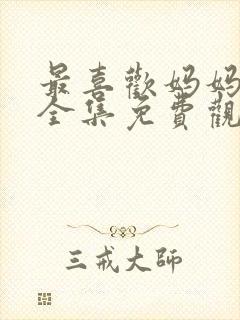 最喜歡媽媽
全集免費觀
三戒大師